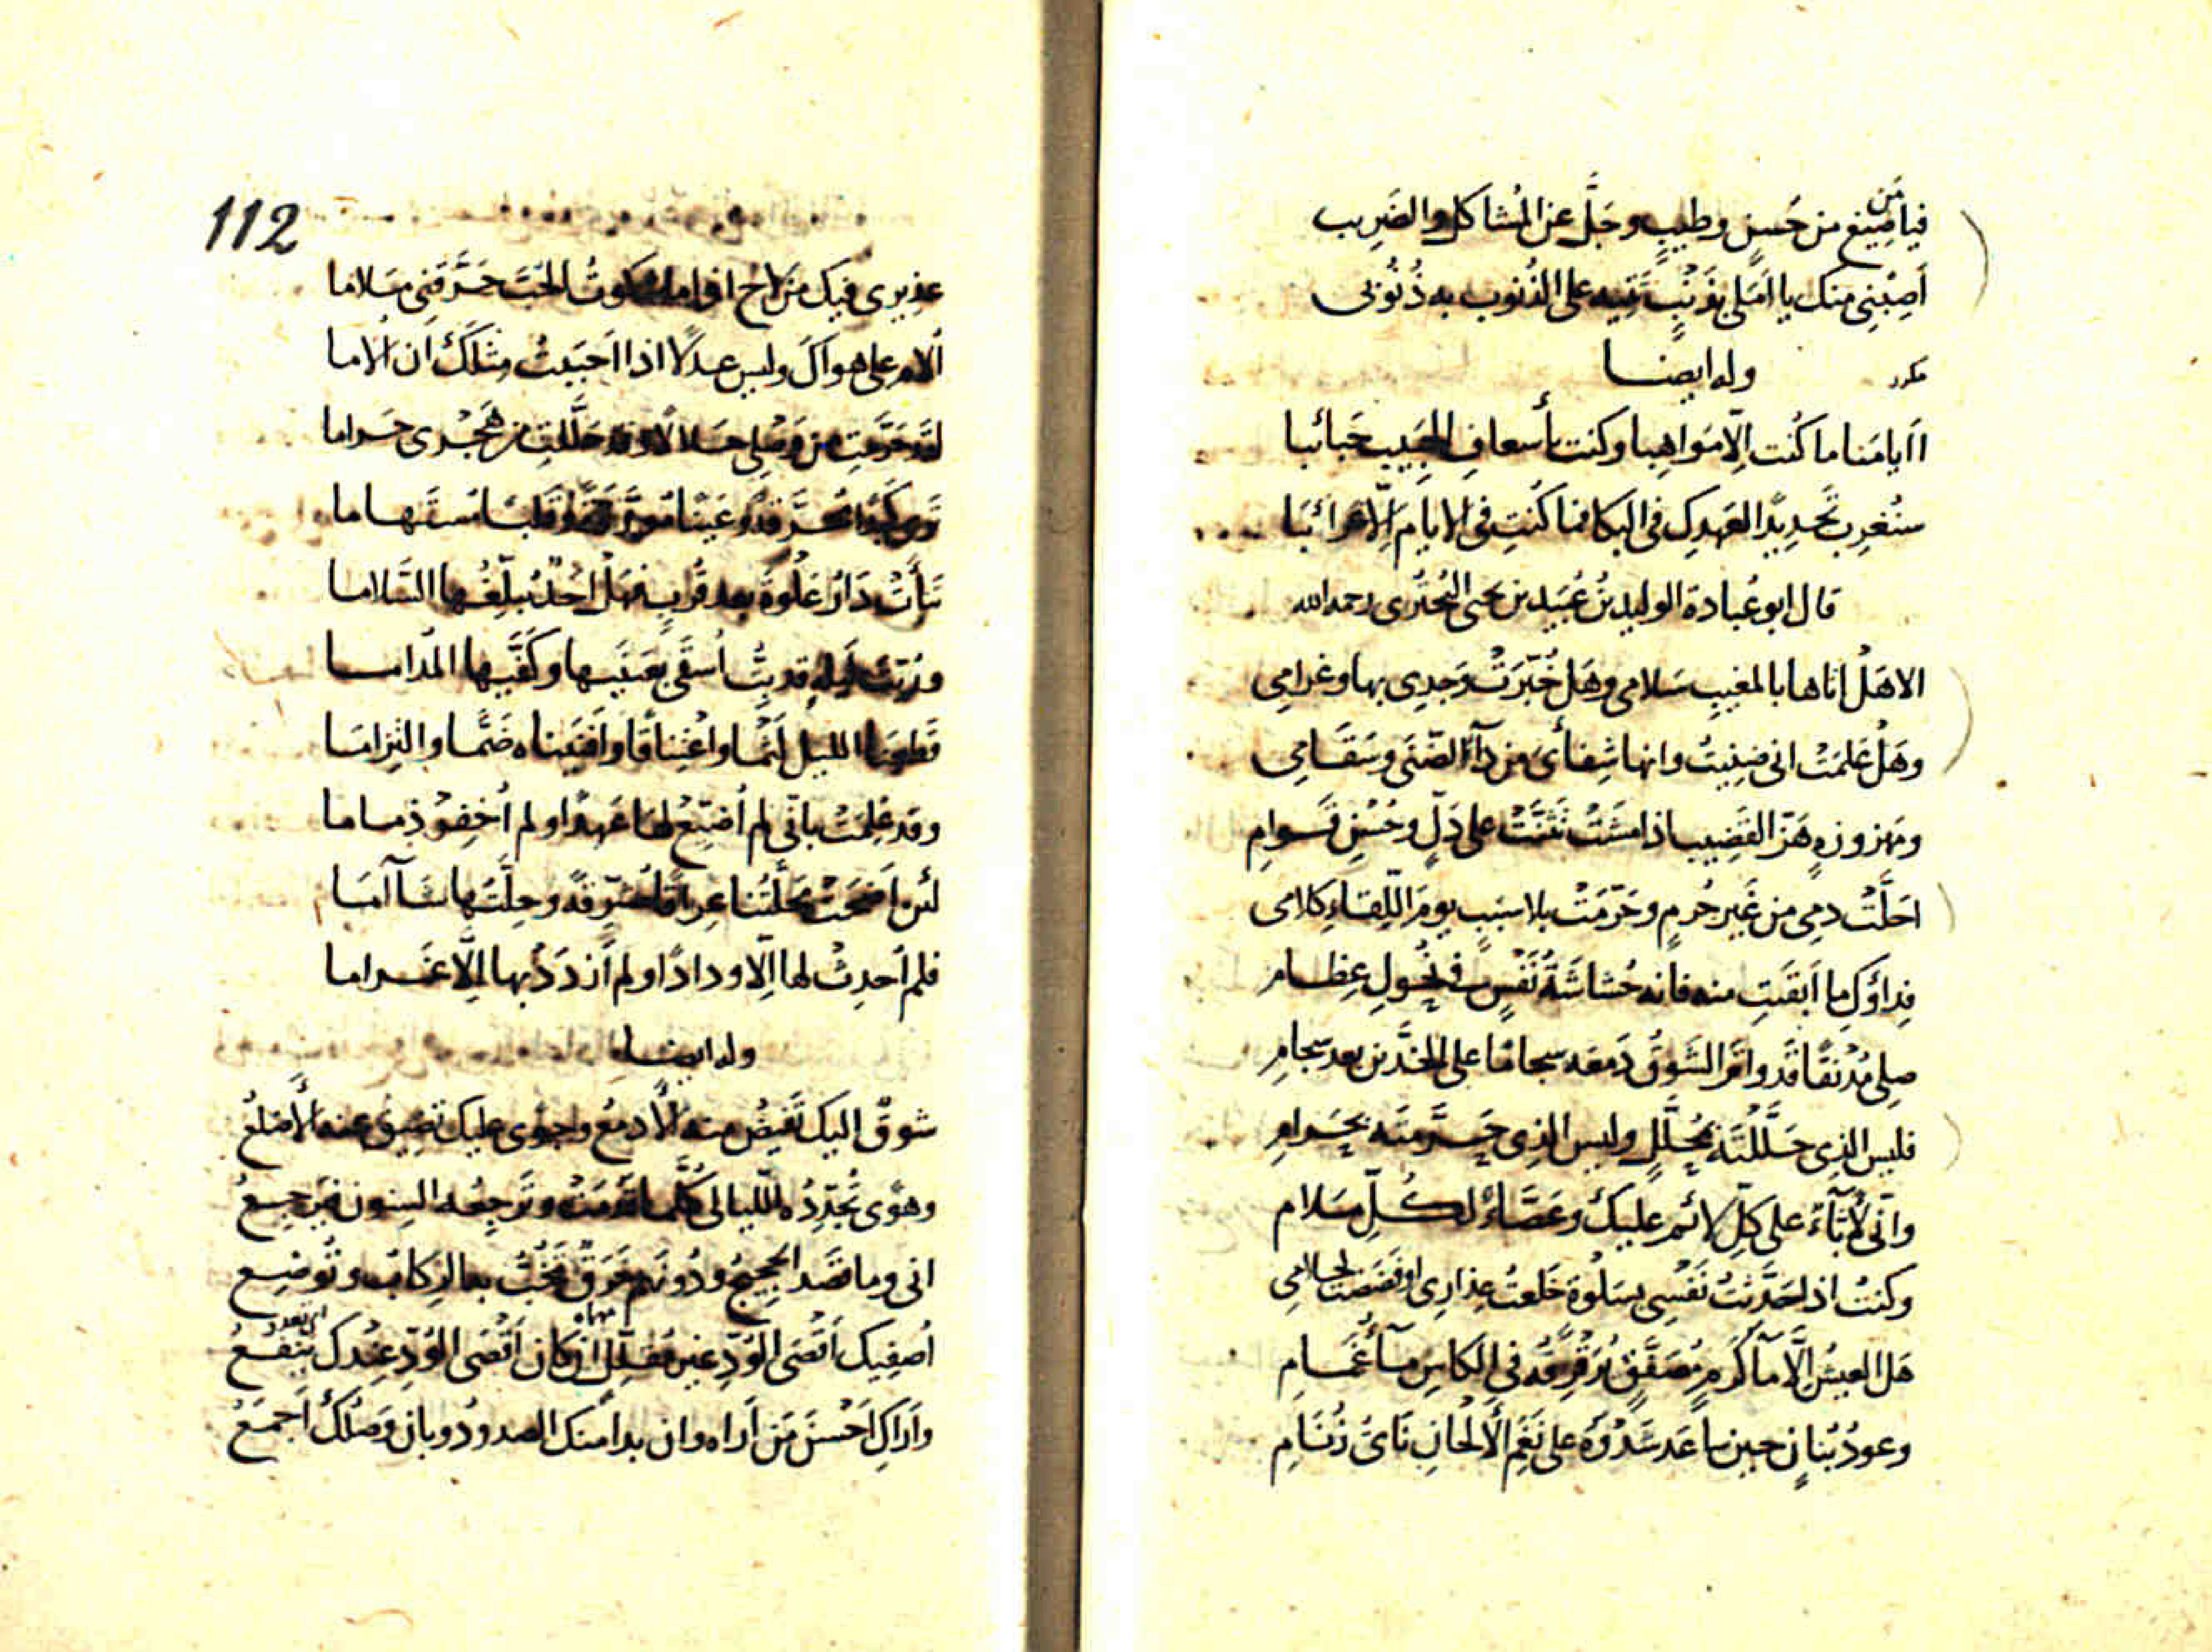 فيا مَن صِيغ من حَسنٍ وطيبٍ وجَلَّ عن المُشاكل والضَرِيب
أَصِبْنِي منك يا اَمَلى بذَنْبٍ تَتِيه على الذُنوب به ذُنُوبى
مكرر وله ايضا
اَايامَنا ما كُنت اِلّا مَواهِبا وكنت بأسعافِ الحَبِيب حَبائبا
سنُغرِب تَجدِيدًا لعَهدِكِ فى البكا فما كُنتِ فى الايامِ اِلّا غَرائبَا
قال ابو عُبادة الوليد بنُ عُبَيد بن يحيى البُحتُرى رحمه الله
الا هَلْ اتاها بالمغيبِ سَلامى وهَل خُبّرَتْ وَجدِى بها وغرامِى
وهَلْ عَلِمَتْ انى ضنِيتُ وانها شِفاۤئى من دآءِ الضّنَى وسَقَامِى
ومَهزوزةٍ هَزَّ القَضِيب اذا مشَتْ تَثَنَّتْ على دَلٍّ وحُسْنِ قَوامِ
احَلَّتْ دمِى من غَيرِ جُرمٍ وحَرّمَتْ بلا سَبَبٍ يومَ اللّقاءِ كلامى
فِداؤكِ ما اَبقَيتِ منه فانه حُشاشَةُ نَفْسٍ فى نُحُولِ عِظامِ
صِلِى مُدْنَفًا قَد واتَرَ الشَوقُ دَمعَه سجامًا على الخدَّين بعد سجامِ
فليس الذِى حَلَّلْتَهُ بمُحَلَّلٍ وليس الذِى حَرَّمتَه بحَرامِ
وانّى لَأبّآءٌ على كلّ لائمٍ عليك وعَصّاءٌ لكلّ مَلام
وكنتُ اذا حَدَّثتُ نَفْسِى بسَلْوة خَلعتُ عِذارِى او فَضَضتُ لجامى
هَل العيشُ اِلّا مآءُ كَرمٍ مُصَفَّقٍ يُرَقرِقُه فى الكاسِ مآءُ غَمَامِ
وعودُ بُنانٍ حين ساعَد شَدْوَهُ على نَغَمِ الاَلْحانِ نَاىُ زُنَامِ
112
عذِيرى فيك من لاحٍ اذا ما شكوتُ الحُبَّ حَرَّقنِى مَلاما
اُلام على هواكَ وليس عدلاً اذا اَحبَبتُ مثلَك اَن اُلاما
لقد حَرَّمتِ من وَصْلِى حلالاً وقد حَلَّلتِ من هَجْرى حراما
نَأَتْ دَارُ عَلْوةَ بعد قُربٍ فهَلْ احدٌ يُبلّغُها السّلاما
ورُبَّتَ ليلةٍ قد بِتُّ اُسقَى بعَينَيها وكَفَّيها المُداما
قَطَعنا الليل لَثْمًا واعْتِناقًا واَفنَيناه ضَمًّا والتِزامَا
وقد عَلِمَتْ بانّى لم اُضيّعْ لها عَهدًا ولم اُخفِرْ ذِماما
لئن اَضحَتْ مَحَلَّتُنا عِراقًا مُشَرِّقةً وحِلَّتُها شَآمَا
فلم اُحدِثْ لها اِلّا وِدادًا ولم اَزدَدْ بها اِلّا غَراما
وله ايضا
شوقٌ اليك تَفيضُ منه الاَدمعُ وجوًى عليك تضِيقُ عنه الاَضلعُ
وهوًى تُجَدِّدُه اللّيالى كلّما قَدُمَتْ وتُرجِعُه السِنون فيَرجِعُ
انى وما قصَد الحَجِيجُ ودُونَهم خَرقٌ تَخُبُّ بها الرِكابُ وتُوضِع
اُصفِيك اَقصَى الوُدِّ غيرَ مُقلِّلٍ ان كان اَقصَى الوُدِّ عِندَك يَنفَعُ
واَراكِ اَحْسَنَ مَن اَراه وان بدا منك الصدودُ وبان وَصْلُك اَجمَعُ